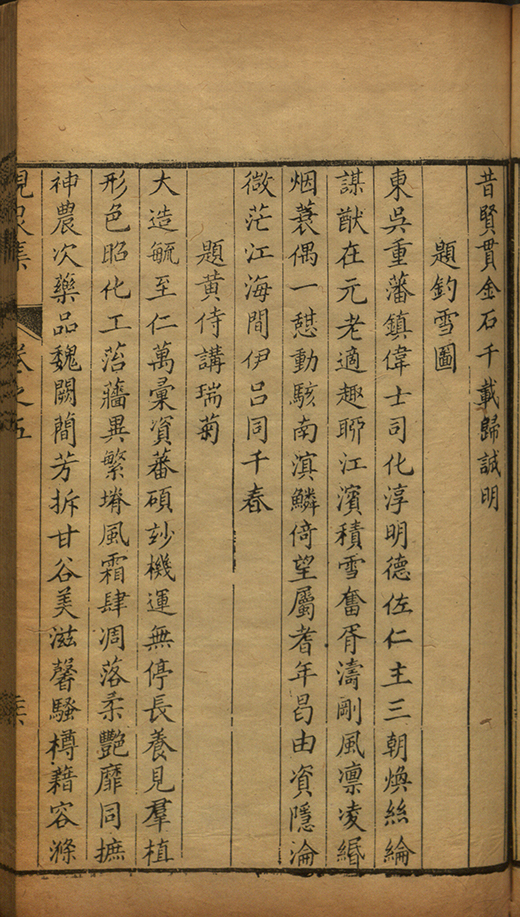 昔賢貫金石千載歸誠明
題釣雪圖
東吳重藩鎮偉士司化淳明德佐仁主三朝煥絲綸
謀猷在元老適趣聊江濱積雪奮胥濤剛風凛凌緡
烟蓑偶一憇動駭南滇鱗倚望屬耆年曷由資隱淪
微茫江海間伊呂同千春
題黄侍講瑞菊
大造毓至仁萬彙資蕃碩玅機運無停長養見羣植
形色昭化工苔牆異繁塉風霜肆凋落柔艷靡同摭
神農次藥品魏闕蕑芳拆甘谷美滋馨騷樽藉容滌
卷之五